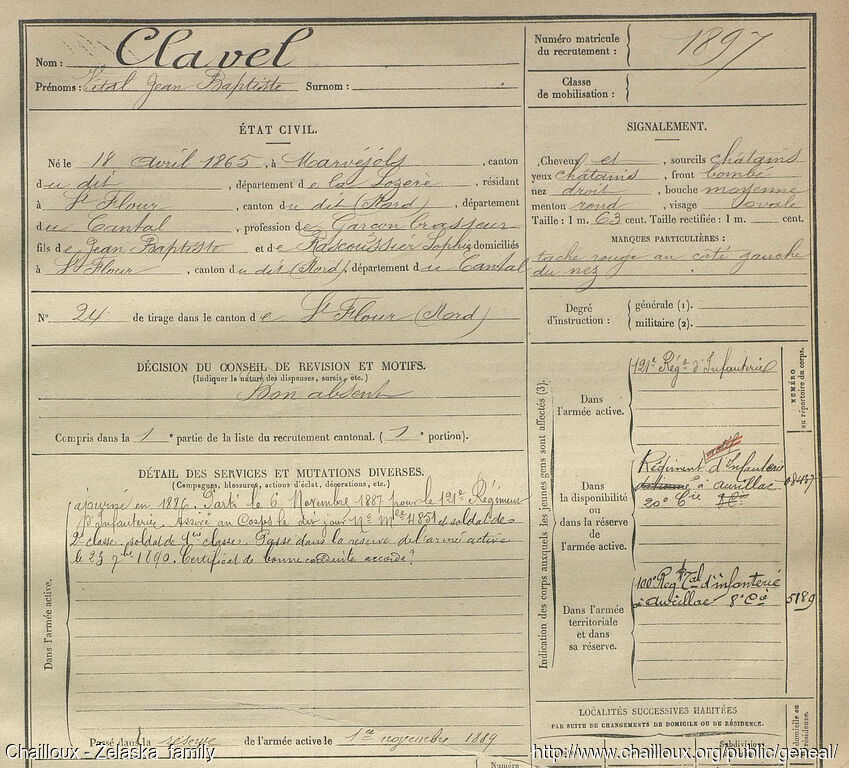 Nom : Clavel
Prénoms : Vital Jean Baptiste Surnom :
Numéro matricule du recrutement : 1897
Classe de mobilisation :
ÉTAT CIVIL.
Né le 18 avril 1865, à Marvéjols, canton
du dit, département de la Lozère, résidant
à St Flour, canton du dit (Nord), département
du Cantal, profession de Garçon brasseur
fils de Jean Baptiste et de Rascoussier Sophie domiciliés
à St Flour, canton du dit (Nord), département du Cantal
N° 24 de tirage dans le canton de St Flour (Nord)
SIGNALEMENT.
Cheveux et, sourcils châtains
yeux châtains, front bombé
nez droit, bouche moyenne
menton rond, visage ovale
Taille : 1 m. 63 cent. Taille rectifiée : 1 m. cent.
MARQUES PARTICULIÈRES :
tache rouge au coté gauche
du nez
Degré d'instruction :
générale (1).
militaire (2).
DÉCISION DU CONSEIL DE REVISION ET MOTIFS.
(Indiquer la nature des dispenses, sursis, etc.)
Bon absent
Compris dans la 1e partie de la liste du recrutement cantonal. (1e portion).
DÉTAIL DES SERVICES ET MUTATIONS DIVERSES.
(Campagnes, blessures, actions d'éclat, décorations, etc.)
Dans l'armée active.
ajourné en 1886. Parti le 6 Novembre 1887 pour le 121e Régiment
d'Infanterie. Arrivé au Corps le dit jour Nº Mle 4851 et soldat de
2e classe. soldat de 1ère classe. Passé dans la réserve de l'armée active
le 23 7bre 1890. Certificat de bonne conduite accordé.
Passé dans la réserve de l'armée active le 1er novembre 1889
Indication des corps auxquels les jeunes gens sont affectés (3).
NUMÉRO au répertoire du corps.
Dans l'armée active.
121e Régt d'Infanterie
Dans la disponibilité ou dans la réserve de l'armée active.
actif
Régiment d'Infanterie
à Aurillac
20e Cie
Dans l'armée territoriale et dans sa réserve.
100e Reg Tal d'infanterie
à Aurillac 8e Cie
5189
LOCALITÉS SUCCESSIVES HABITÉES
PAR SUITE DE CHANGEMENTS DE DOMICILE OU DE RÉSIDENCE.
Subdivision
domicile ou résidence.
Numéro
Chailloux - Zelaska_family
http://www.chailloux.org/public/geneal/